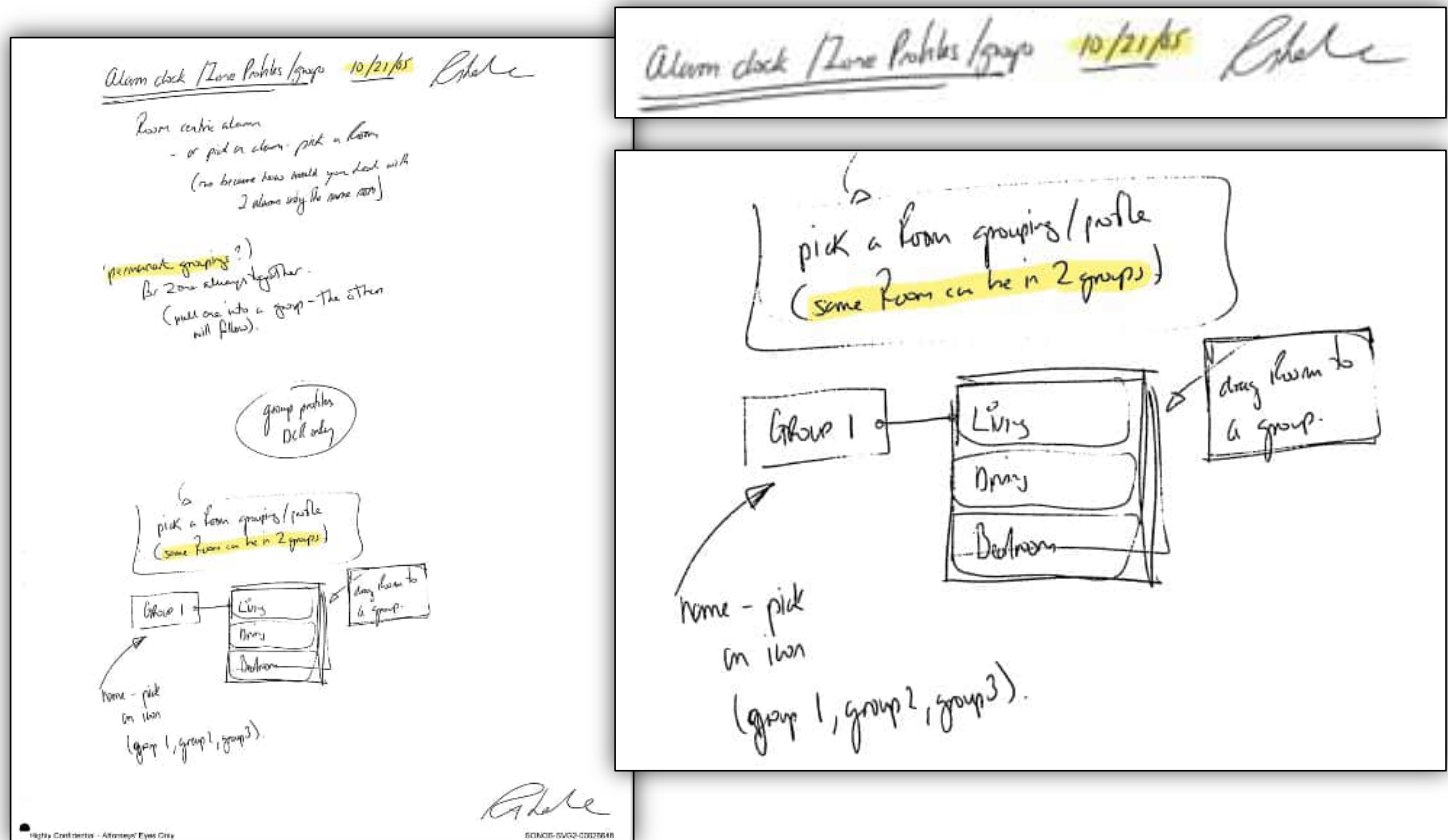 Alarm clock / Zone Profiles / groups 10/21/05
Room centric alarm
- or pick an alarm - pick a Room
(no because how would you deal with
2 alarms using the same room)
'permanent groupings'?)
For Zone always together.
(pull one into a group - the other
will follow).
group profiles
DCR only
pick a Room grouping / profile
(same Room can be in 2 groups)
GROUP 1
Living
Dining
Bedroom
drag Room to
a group.
name - pick
an icon
(group 1, group 2, group 3).
Highly Confidential - Attorneys' Eyes Only
SONOS-SVG2-00026848
Alarm clock / Zone Profiles / groups 10/21/05
pick a Room grouping / profile
(same Room can be in 2 groups)
GROUP 1
Living
Dining
Bedroom
drag Room to
a group.
name - pick
an icon
(group 1, group 2, group 3).